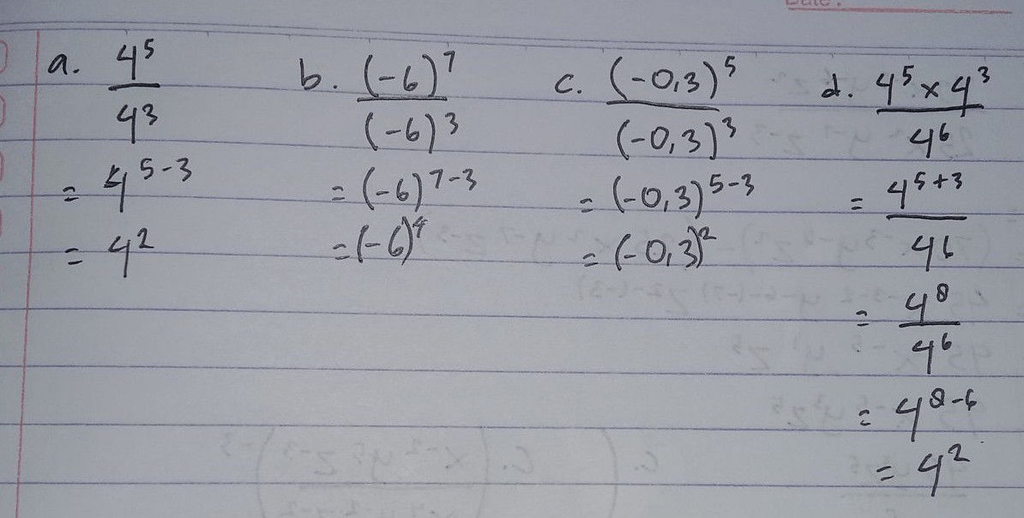 a. 4^5 / 4^3
= 4^{5-3}
= 4^2
b. (-6)^7 / (-6)^3
= (-6)^{7-3}
= (-6)^4
c. (-0,3)^5 / (-0,3)^3
= (-0,3)^{5-3}
= (-0,3)^2
d. 4^5 × 4^3 / 4^6
= 4^{5+3} / 4^6
= 4^8 / 4^6
= 4^{8-6}
= 4^2